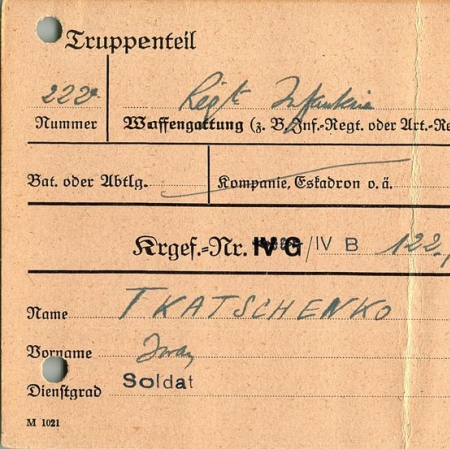 Truppenteil
222 Regt Infanterie
Nummer Waffengattung (z. B. Inf.-Regt. oder Art.-Re
Bat. oder Abtlg. Kompanie, Eskadron o.ä.
Krgef.-Nr. IV G /IV B 122.
Name TKATSCHENKO
Vorname Iwan
Dienstgrad Soldat
M 1021